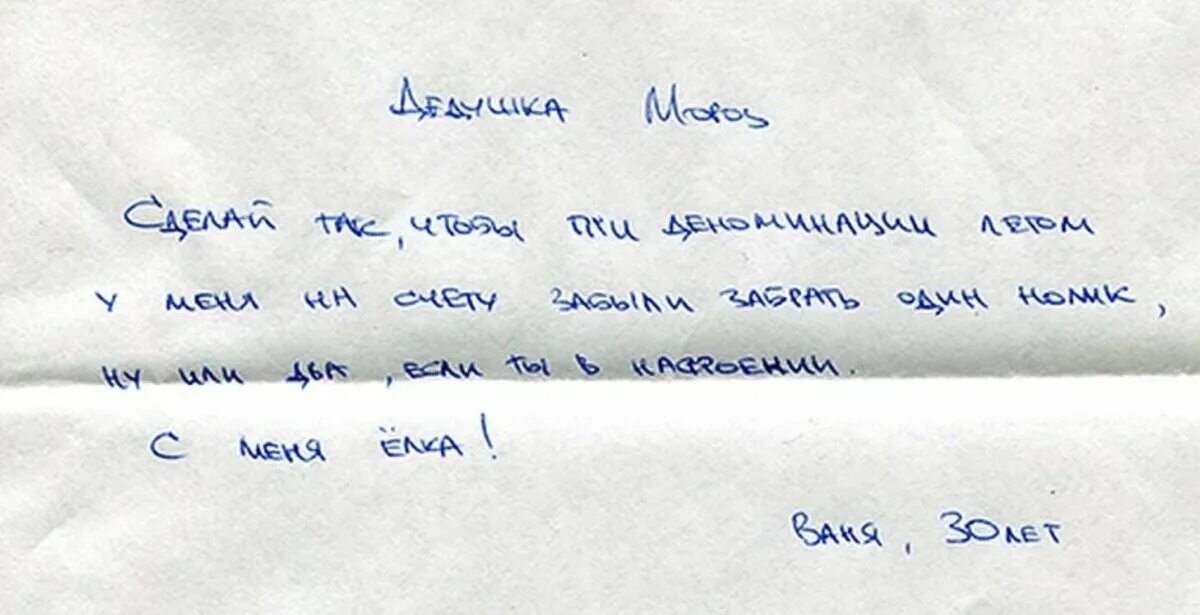 Дедушка Мороз
Сделай так, чтобы при деноминации летом
у меня на счету забыли забрать один нолик,
ну или два, если ты в настроении.
С меня ёлка!
Ваня, 30 лет